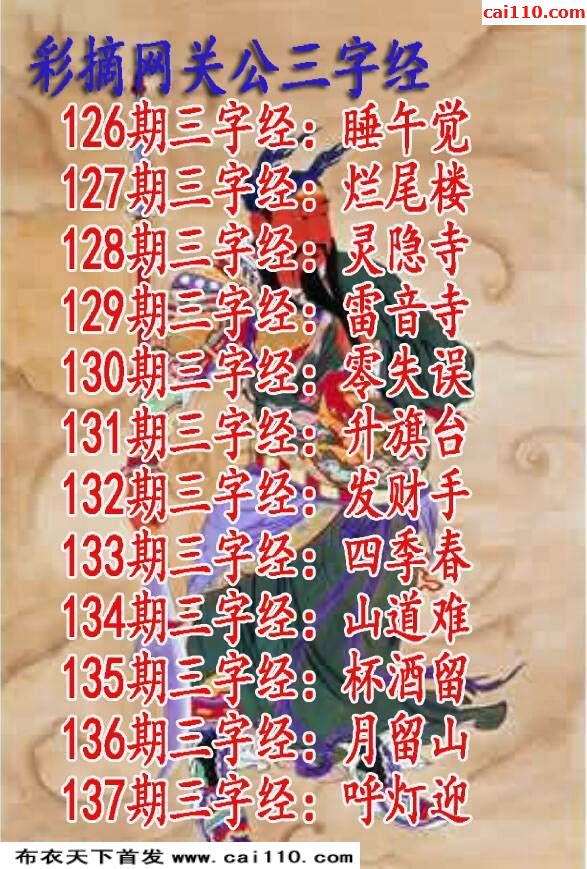 cai110.com
彩摘网关公三字经
126期三字经：睡午觉
127期三字经：烂尾楼
128期三字经：灵隐寺
129期三字经：雷音寺
130期三字经：零失误
131期三字经：升旗台
132期三字经：发财手
133期三字经：四季春
134期三字经：山道难
135期三字经：杯酒留
136期三字经：月留山
137期三字经：呼灯迎
布衣天下首发 www.cai110.com